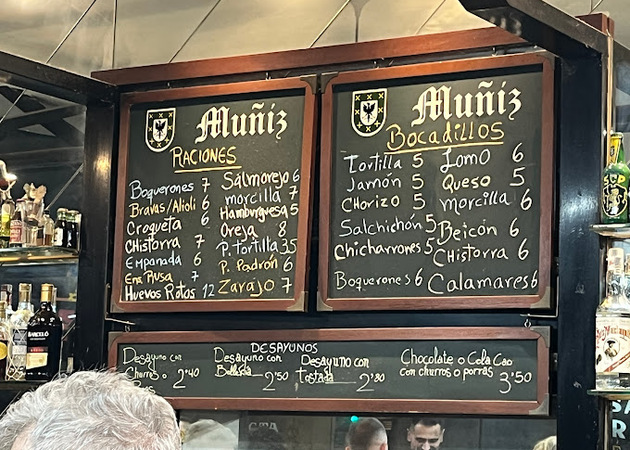 Muñiz
RACIONES
Boquerones 7
Bravas/Alioli 6
Croqueta 6
Chistorra 7
Empanada 6
Ensa Rusa 7
Huevos Rotos 12
Salmorejo 6
morcilla 7
Hamburguesa 5
Oreja 8
P. Tortilla 35
P. Padrón 6
Zarajo 7
Muñiz
Bocadillos
Tortilla 5
Jamón 5
Chorizo 5
Salchichón 5
Chicharrones 5
Boquerones 6
Lomo 6
Queso 5
morcilla 6
Beicón 6
Chistorra 6
Calamares 6
DESAYUNOS
Desayuno con
Churros o
2'40
Desayuno con
2'50
Desayuno con
Tostada 2'80
Chocolate o Cola Cao
con churros o porras 3'50
BARCELÓ